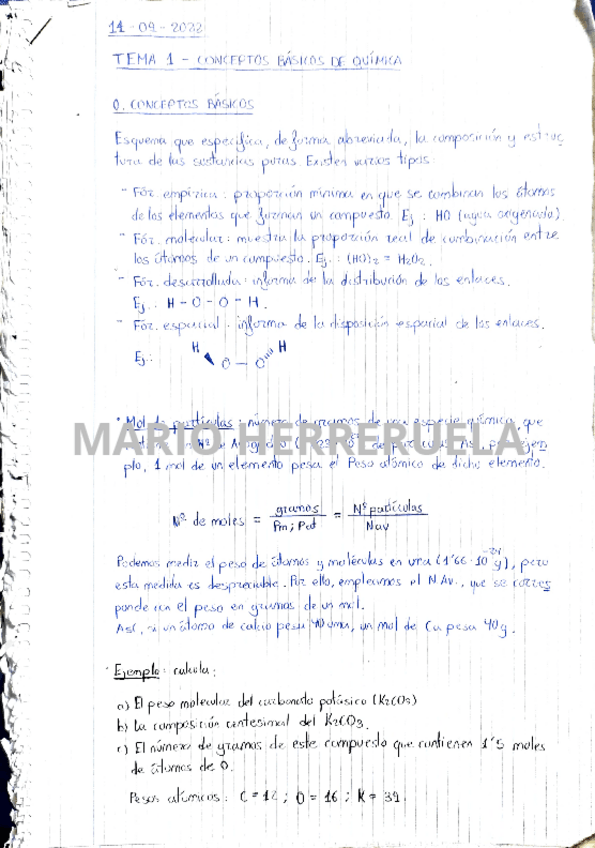 14-09-2022
TEMA 1 - CONCEPTOS BÁSICOS DE QUÍMICA
0. CONCEPTOS BÁSICOS
Esquema que especifica, de forma abreviada, la composición y estruc
tura de las sustancias puras. Existen varios tipos:
- Fór. empírica: proporción mínima en que se combinan los átomos
de los elementos que forman un compuesto. Ej: HO (agua oxigenada).
- Fór. molecular: muestra la proporción real de combinación entre
los átomos de un compuesto. Ej.: (HO)2 = H2O2.
- Fór. desarrollada: informa de la distribución de los enlaces.
Ej.: H-O-O-H.
- Fór. espacial: informa de la disposición espacial de los enlaces.
Ej.: H O - O H
· Mol de partículas: número de gramos de una especie química, que
MARIO HERRERUELA
Nº Avogadro de partículas. Así, por ejem
plo, 1 mol de un elemento pesa el Peso atómico de dicho elemento.
Nº de moles = gramos / Pm; Pat = Nº partículas / Nav
Podemos medir el peso de átomos y moléculas en uma (1'66·10^-24 g), pero
esta medida es despreciable. Por ello, empleamos el NAv., que se corres
ponde con el peso en gramos de un mol.
Así, si un átomo de calcio pesa 40 uma, un mol de Ca pesa 40g.
· Ejemplo: calcula:
a) El peso molecular del carbonato potásico (K2CO3)
b) La composición centesimal del K2CO3.
c) El número de gramos de este compuesto que contienen 1'5 moles
de átomos de O.
Pesos atómicos: C=12; O=16; K=39.